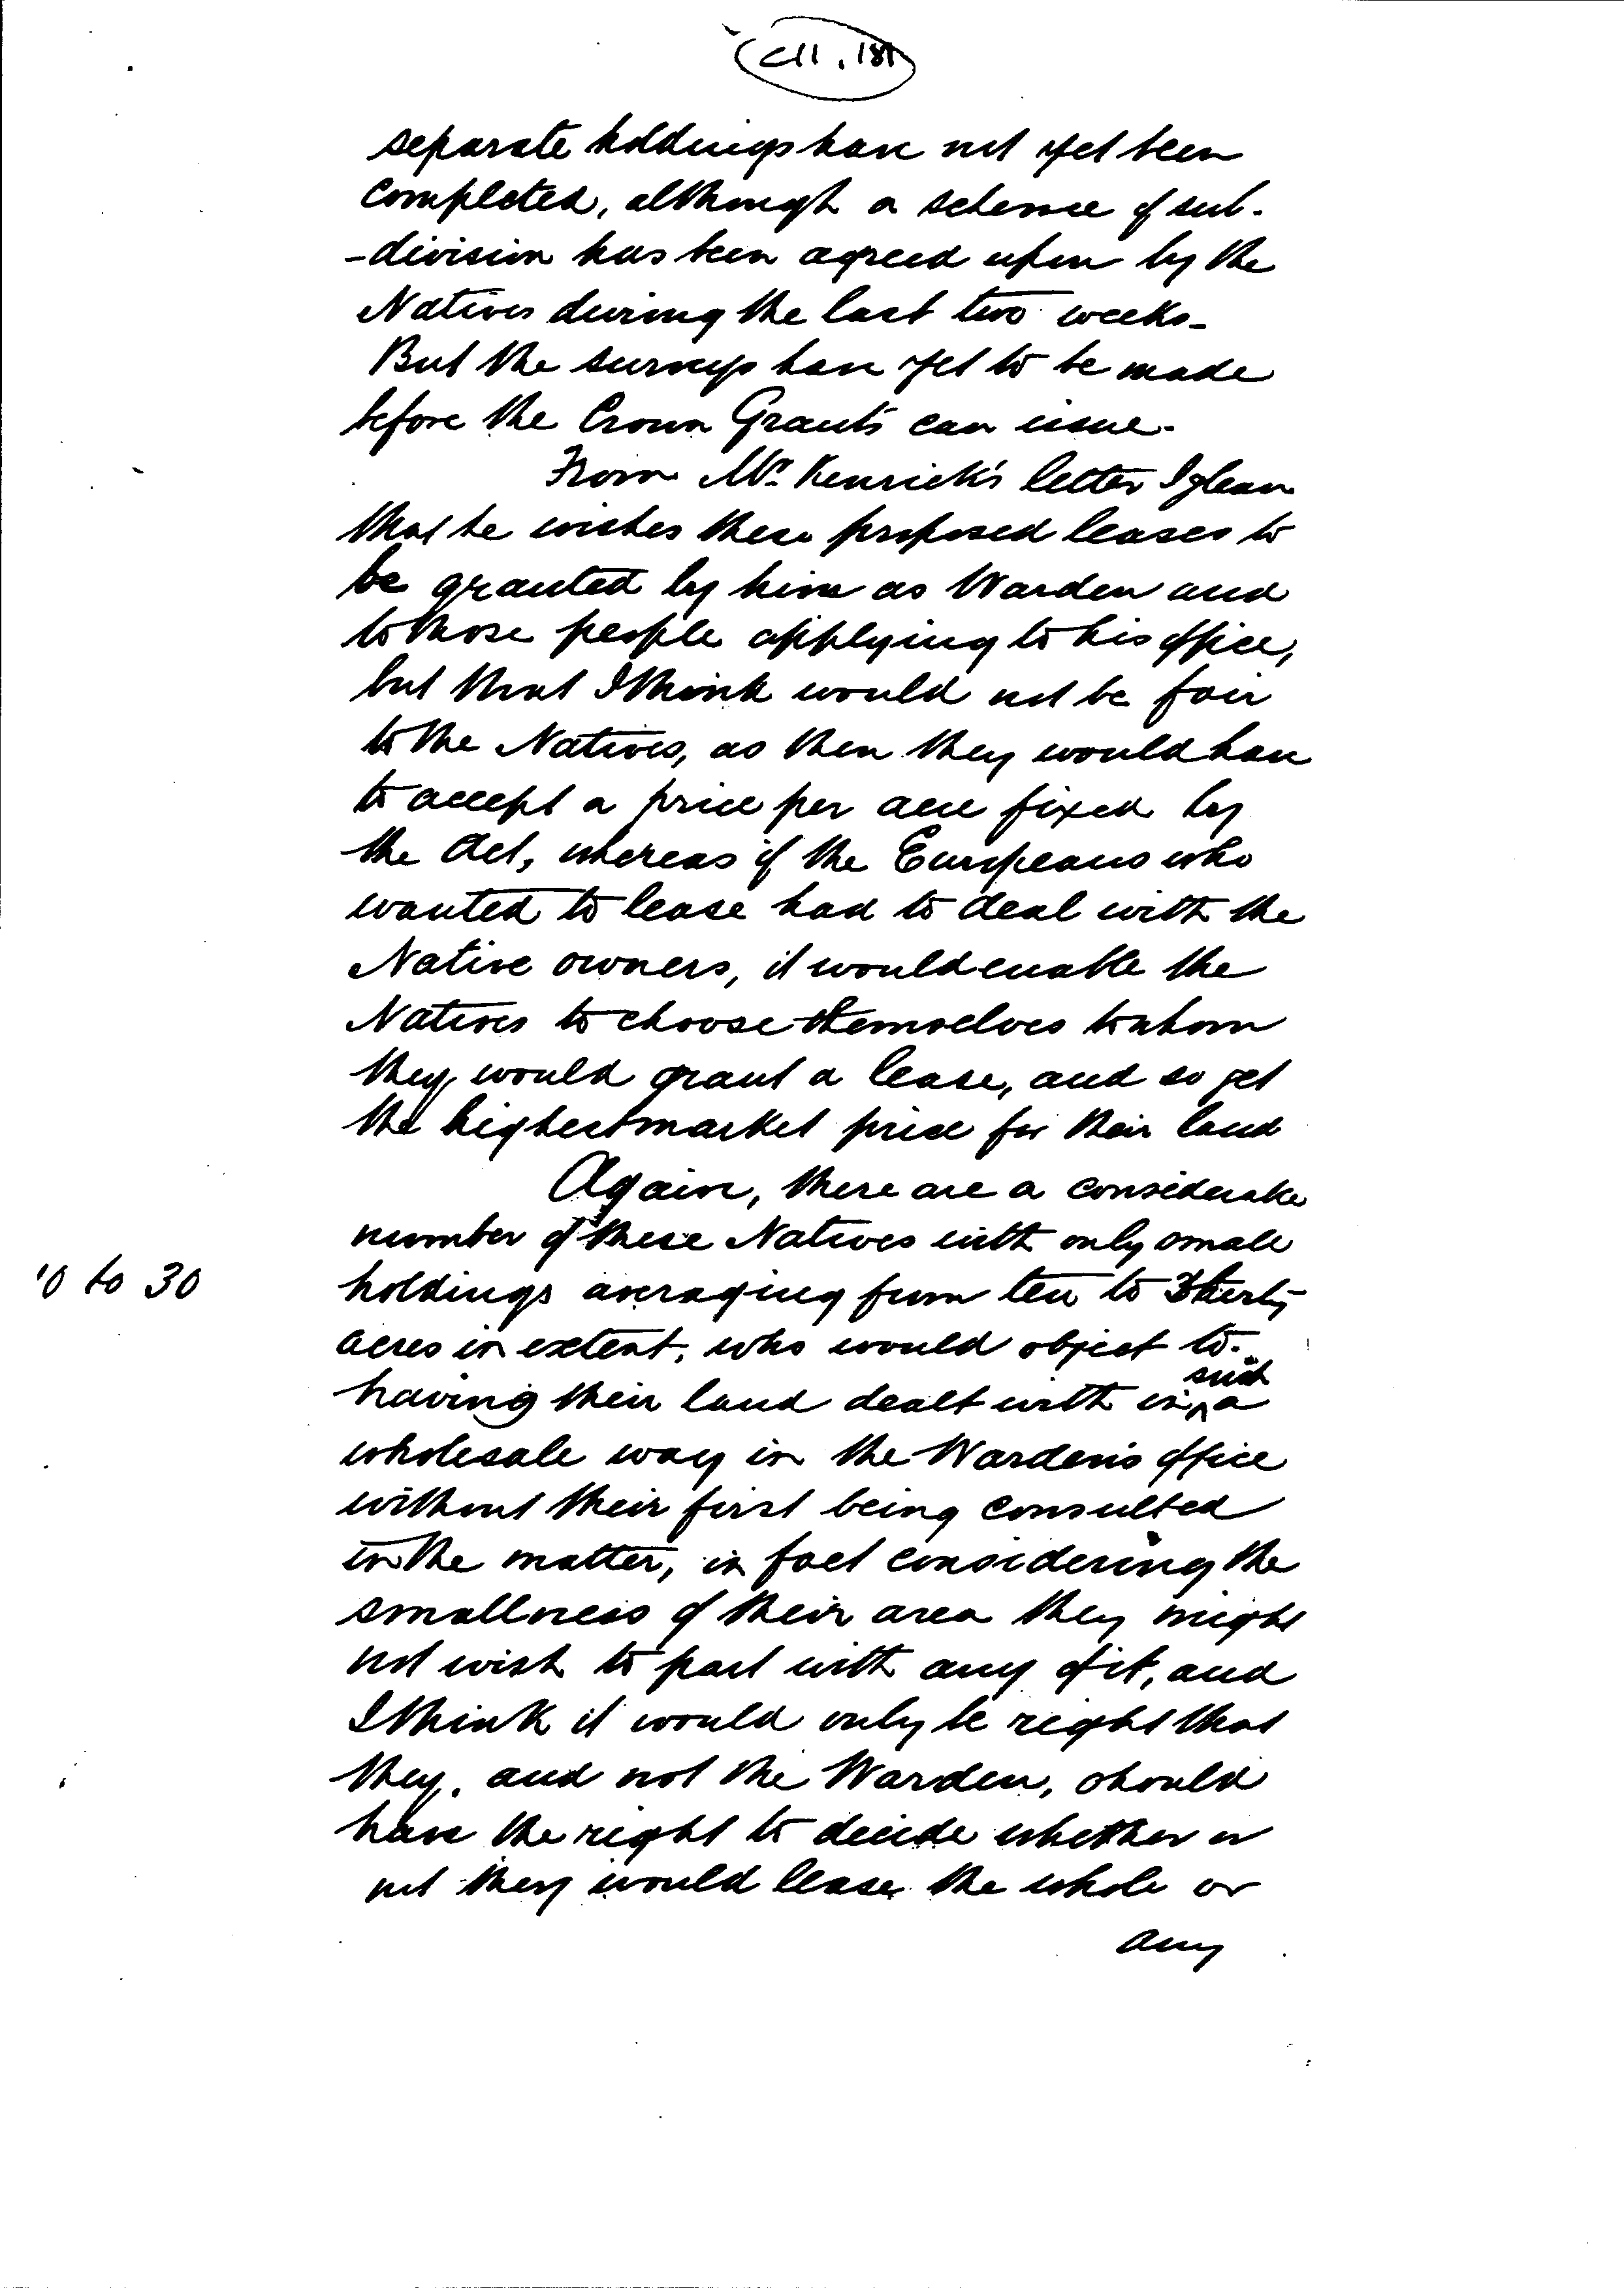 C11.181
separate holdings have not yet been
completed, although a scheme of sub-
-division has been agreed upon by the
Natives during the last two weeks.
But the surveys have yet to be made
before the Crown Grants can issue.
From Mr. Kenrick's letter I glean
that he wishes these proposed leases to
be granted by him as Warden and
to those people applying to his office,
but that I think would not be fair
to the Natives, as then they would have
to accept a price per acre fixed by
the Act, whereas if the Europeans who
wanted to lease had to deal with the
Native owners, it would enable the
Natives to choose themselves to whom
they would grant a lease, and so get
the highest market price for their land
Again, there are a considerable
number of these Natives with only small
10 to 30
holdings averaging from ten to thirty
acres in extent, who would object to
having their land dealt with in such a
wholesale way in the Warden's office
without their first being consulted
in the matter, in fact considering the
smallness of their area they might
not wish to part with any of it, and
I think it would only be right that
they, and not the Warden, should
have the right to decide whether or
not they would lease the whole or
any